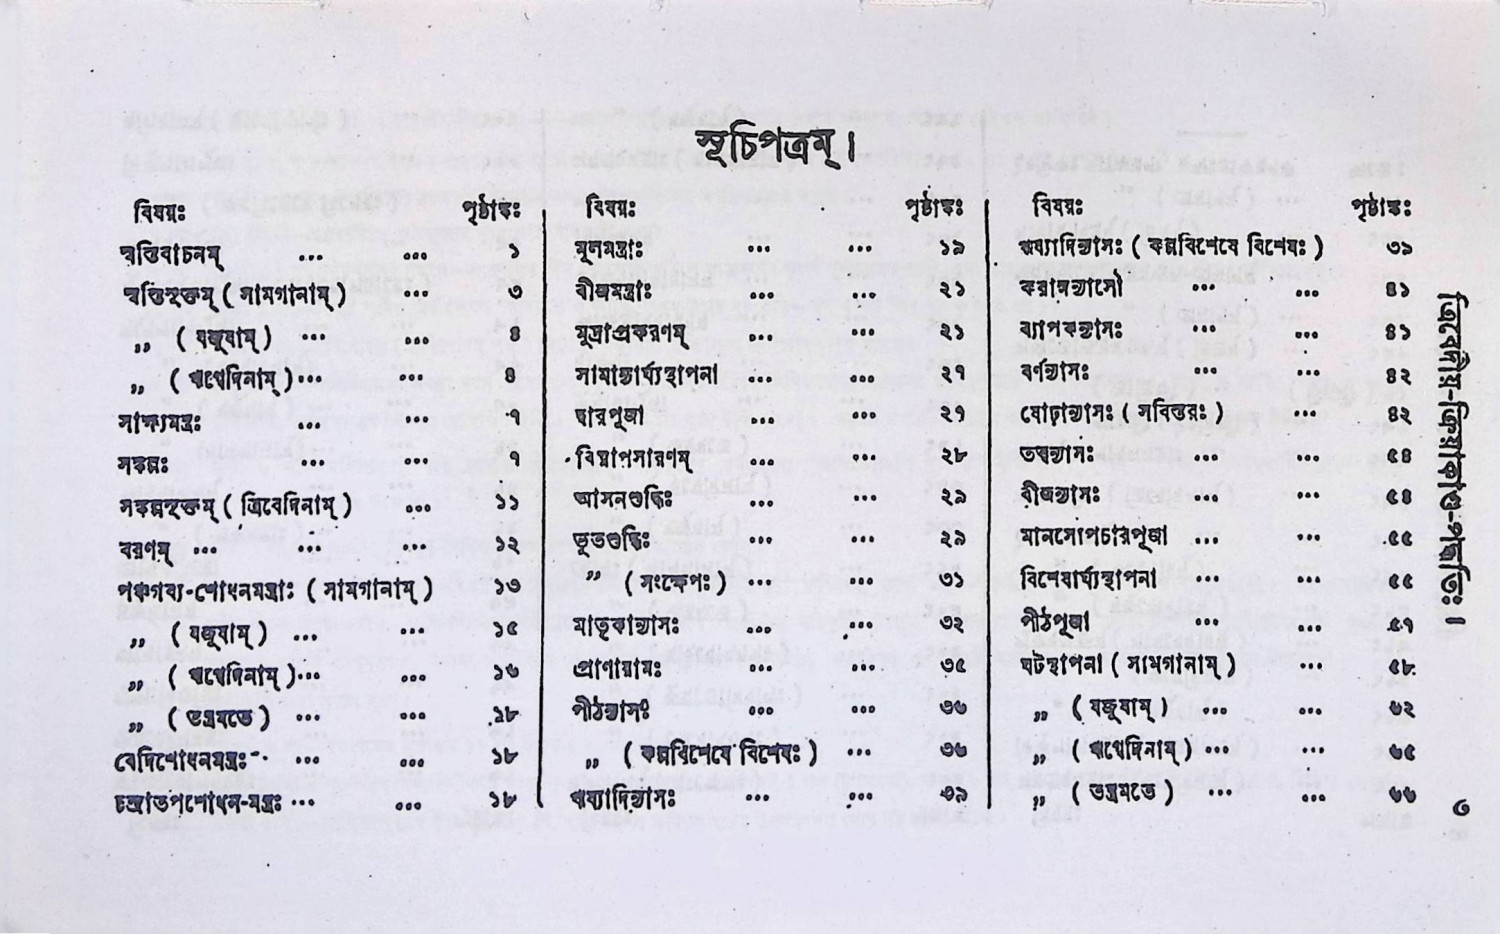 সূচিপত্রম্।
বিষয়ঃ পৃষ্ঠাঙ্কঃ
স্বস্তিবাচনম্ ... ... ১
স্বস্তিসূক্তম্ ( সামগানাম্ ) ... ৩
„ ( যজুষাম্ ) ... ... ৪
„ ( ঋগ্বেদিনাম্ )... ... ৪
সাক্ষ্যমন্ত্রঃ ... ... ৭
সঙ্কল্পঃ ... ... ৭
সঙ্কল্পসূক্তম্ ( ত্রিবেদিনাম্ ) ... ১১
বরণম্ ... ... ... ১২
পঞ্চগব্য-শোধনমন্ত্রাঃ ( সামগানাম্ ) ১৩
„ ( যজুষাম্ ) ... ... ১৫
„ ( ঋগ্বেদিনাম্ )... ... ১৬
„ ( তন্ত্রমতে ) ... ... ১৮
বেদিশোধনমন্ত্রঃ ... ... ১৮
চন্দ্রাতপশোধন-মন্ত্রঃ ... ... ১৮
বিষয়ঃ পৃষ্ঠাঙ্কঃ
মূলমন্ত্রাঃ ... ... ১৯
বীজমন্ত্রাঃ ... ... ২১
মুদ্রাপ্রকরণম্ ... ... ২১
সামান্যার্ঘ্যস্থাপনা ... ... ২৭
দ্বারপূজা ... ... ২৭
বিঘ্নাপসারণম্ ... ... ২৮
আসনশুদ্ধিঃ ... ... ২৯
ভূতশুদ্ধিঃ ... ... ২৯
" ( সংক্ষেপঃ ) ... ... ৩১
মাতৃকান্যাসঃ ... ... ৩২
প্রাণায়ামঃ ... ... ৩৫
পীঠন্যাসঃ ... ... ৩৬
„ ( কল্পবিশেষে বিশেষঃ ) ... ৩৬
ঋষ্যাদিন্যাসঃ ... ... ৩৯
বিষয়ঃ পৃষ্ঠাঙ্কঃ
ঋষ্যাদিন্যাসঃ ( কল্পবিশেষে বিশেষঃ ) ৩৯
করাঙ্গন্যাসৌ ... ... ৪১
ব্যাপকন্যাসঃ ... ... ৪১
বর্ণন্যাসঃ ... ... ৪২
ষোঢ়ান্যাসঃ ( সবিস্তরঃ ) ... ৪২
তত্ত্বন্যাসঃ ... ... ৫৪
বীজন্যাসঃ ... ... ৫৪
মানসোপচারপূজা ... ... ৫৫
বিশেষার্ঘ্যস্থাপনা ... ... ৫৫
পীঠপূজা ... ... ৫৭
ঘটস্থাপনা ( সামগানাম্ ) ... ৫৮
„ ( যজুষাম্ ) ... ... ৬২
„ ( ঋগ্বেদিনাম্ ) ... ... ৬৫
„ ( তন্ত্রমতে ) ... ... ৬৬
ত্রিবেদীয়-ক্রিয়াকাণ্ড-পদ্ধতিঃ।
৩